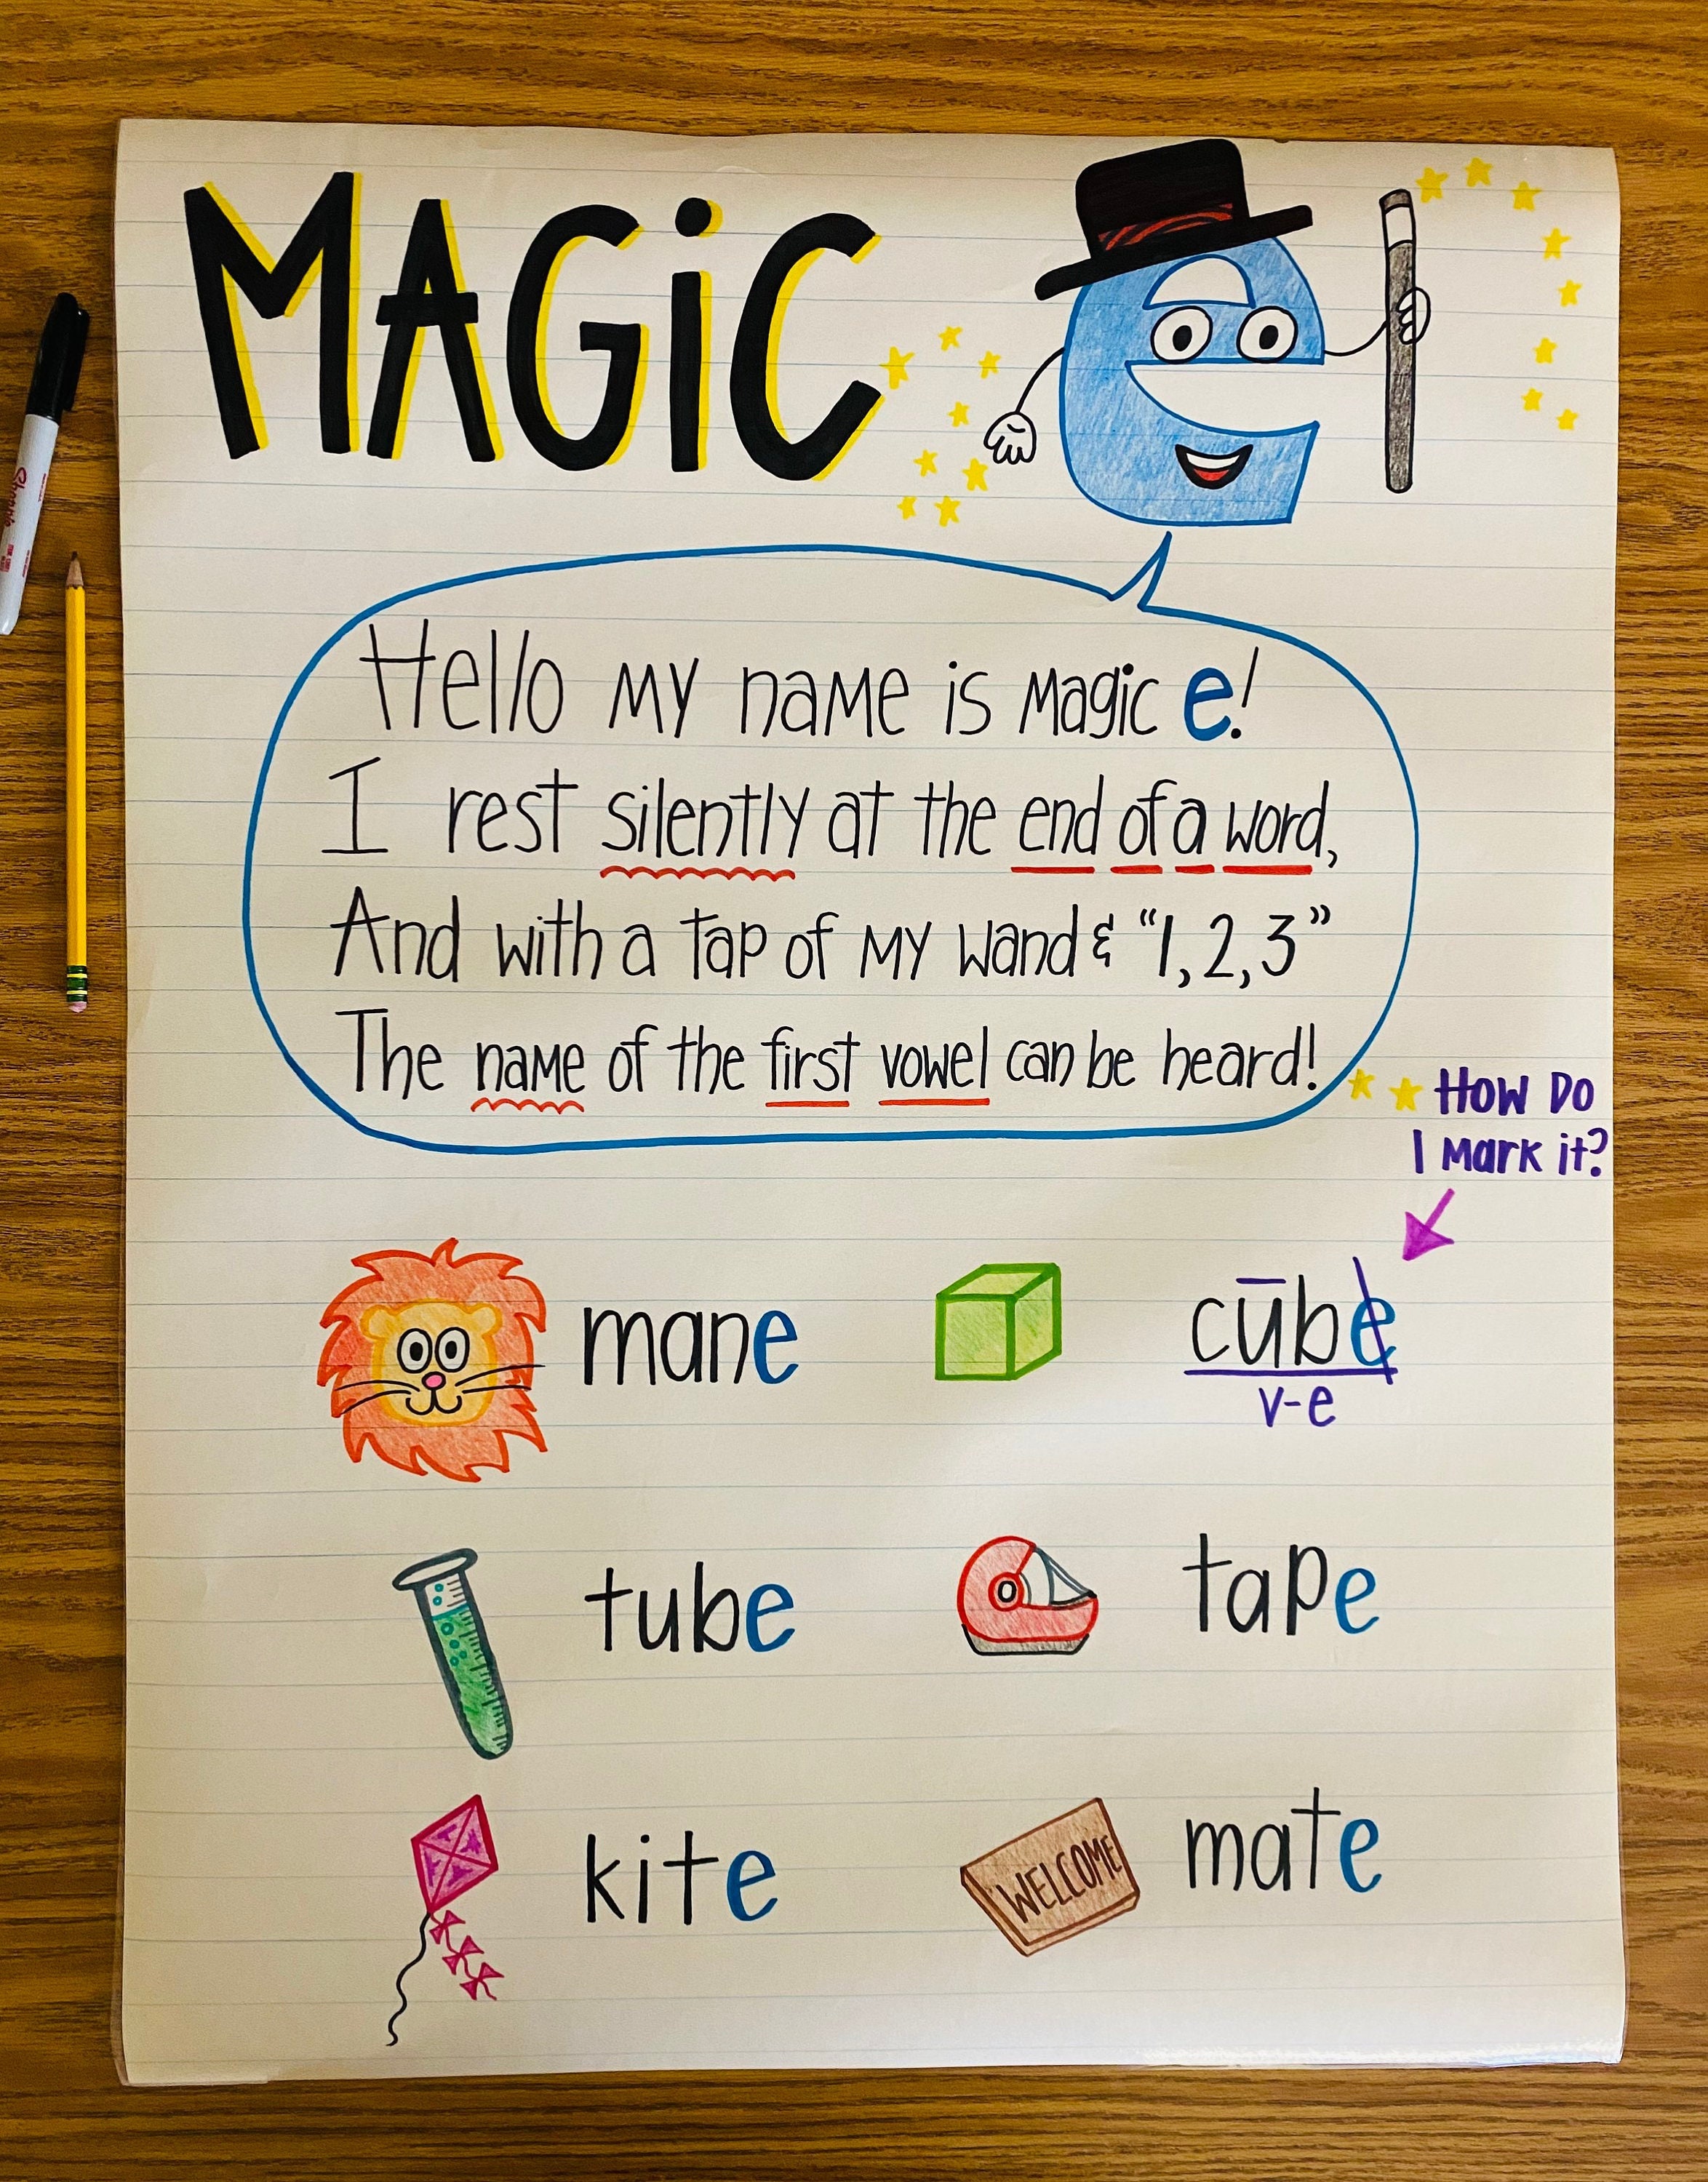 MAGiC e
Hello my name is Magic e!
I rest silently at the end of a word,
And with a tap of my wand & "1,2,3"
The name of the first vowel can be heard!
How Do
I Mark it?
mane
cūbe
v-e
tube
tape
kite
WELCOME
mate
Sharpie